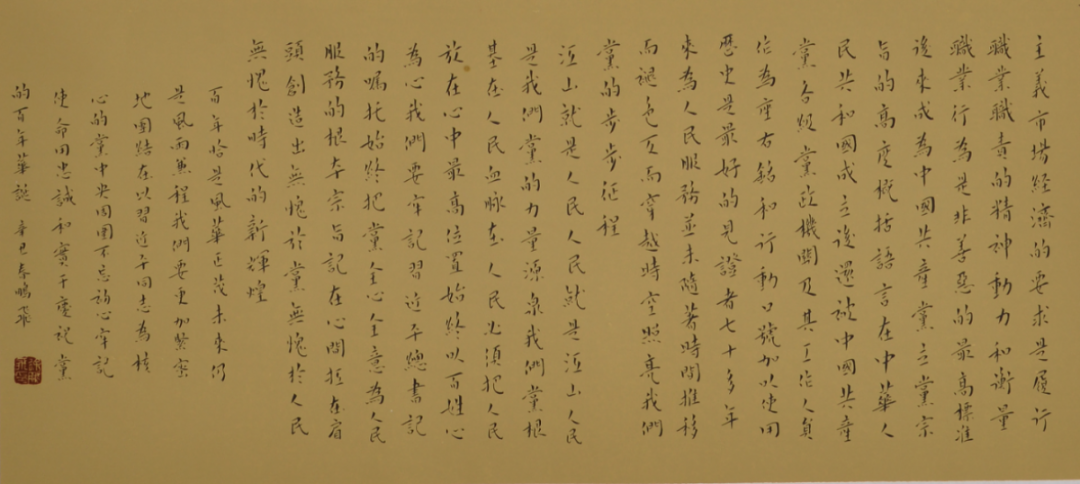 主義市場經濟的要求是履行
職業職責的精神動力和衡量
職業行為是非善惡的最高標准
後來成為中國共產黨立黨宗
旨的高度概括語言在中華人
民共和國成立後還被中國共產
黨各級黨政機關及其工作人員
作為座右銘和行動口號加以使用
歷史是最好的見證者七十多年
來為人民服務並未隨著時間推移
而褪色反而穿越時空照亮我們
黨的步步征程
江山就是人民人民就是江山人民
是我們黨的力量源泉我們黨根
基在人民血脈在人民必須把人民
放在心中最高位置始終以百姓心
為心我們要牢記習近平總書記
的囑托始終把黨全心全意為人民
服務的根本宗旨記在心間扛在肩
頭創造出無愧於黨無愧於人民
無愧於時代的新輝煌
百年恰是風華正茂未來仍
是風雨兼程我們要更加緊密
地團結在以習近平同志為核
心的黨中央周圍不忘初心牢記
使命用忠誠和實干慶祝黨
的百年華誕 辛巳春